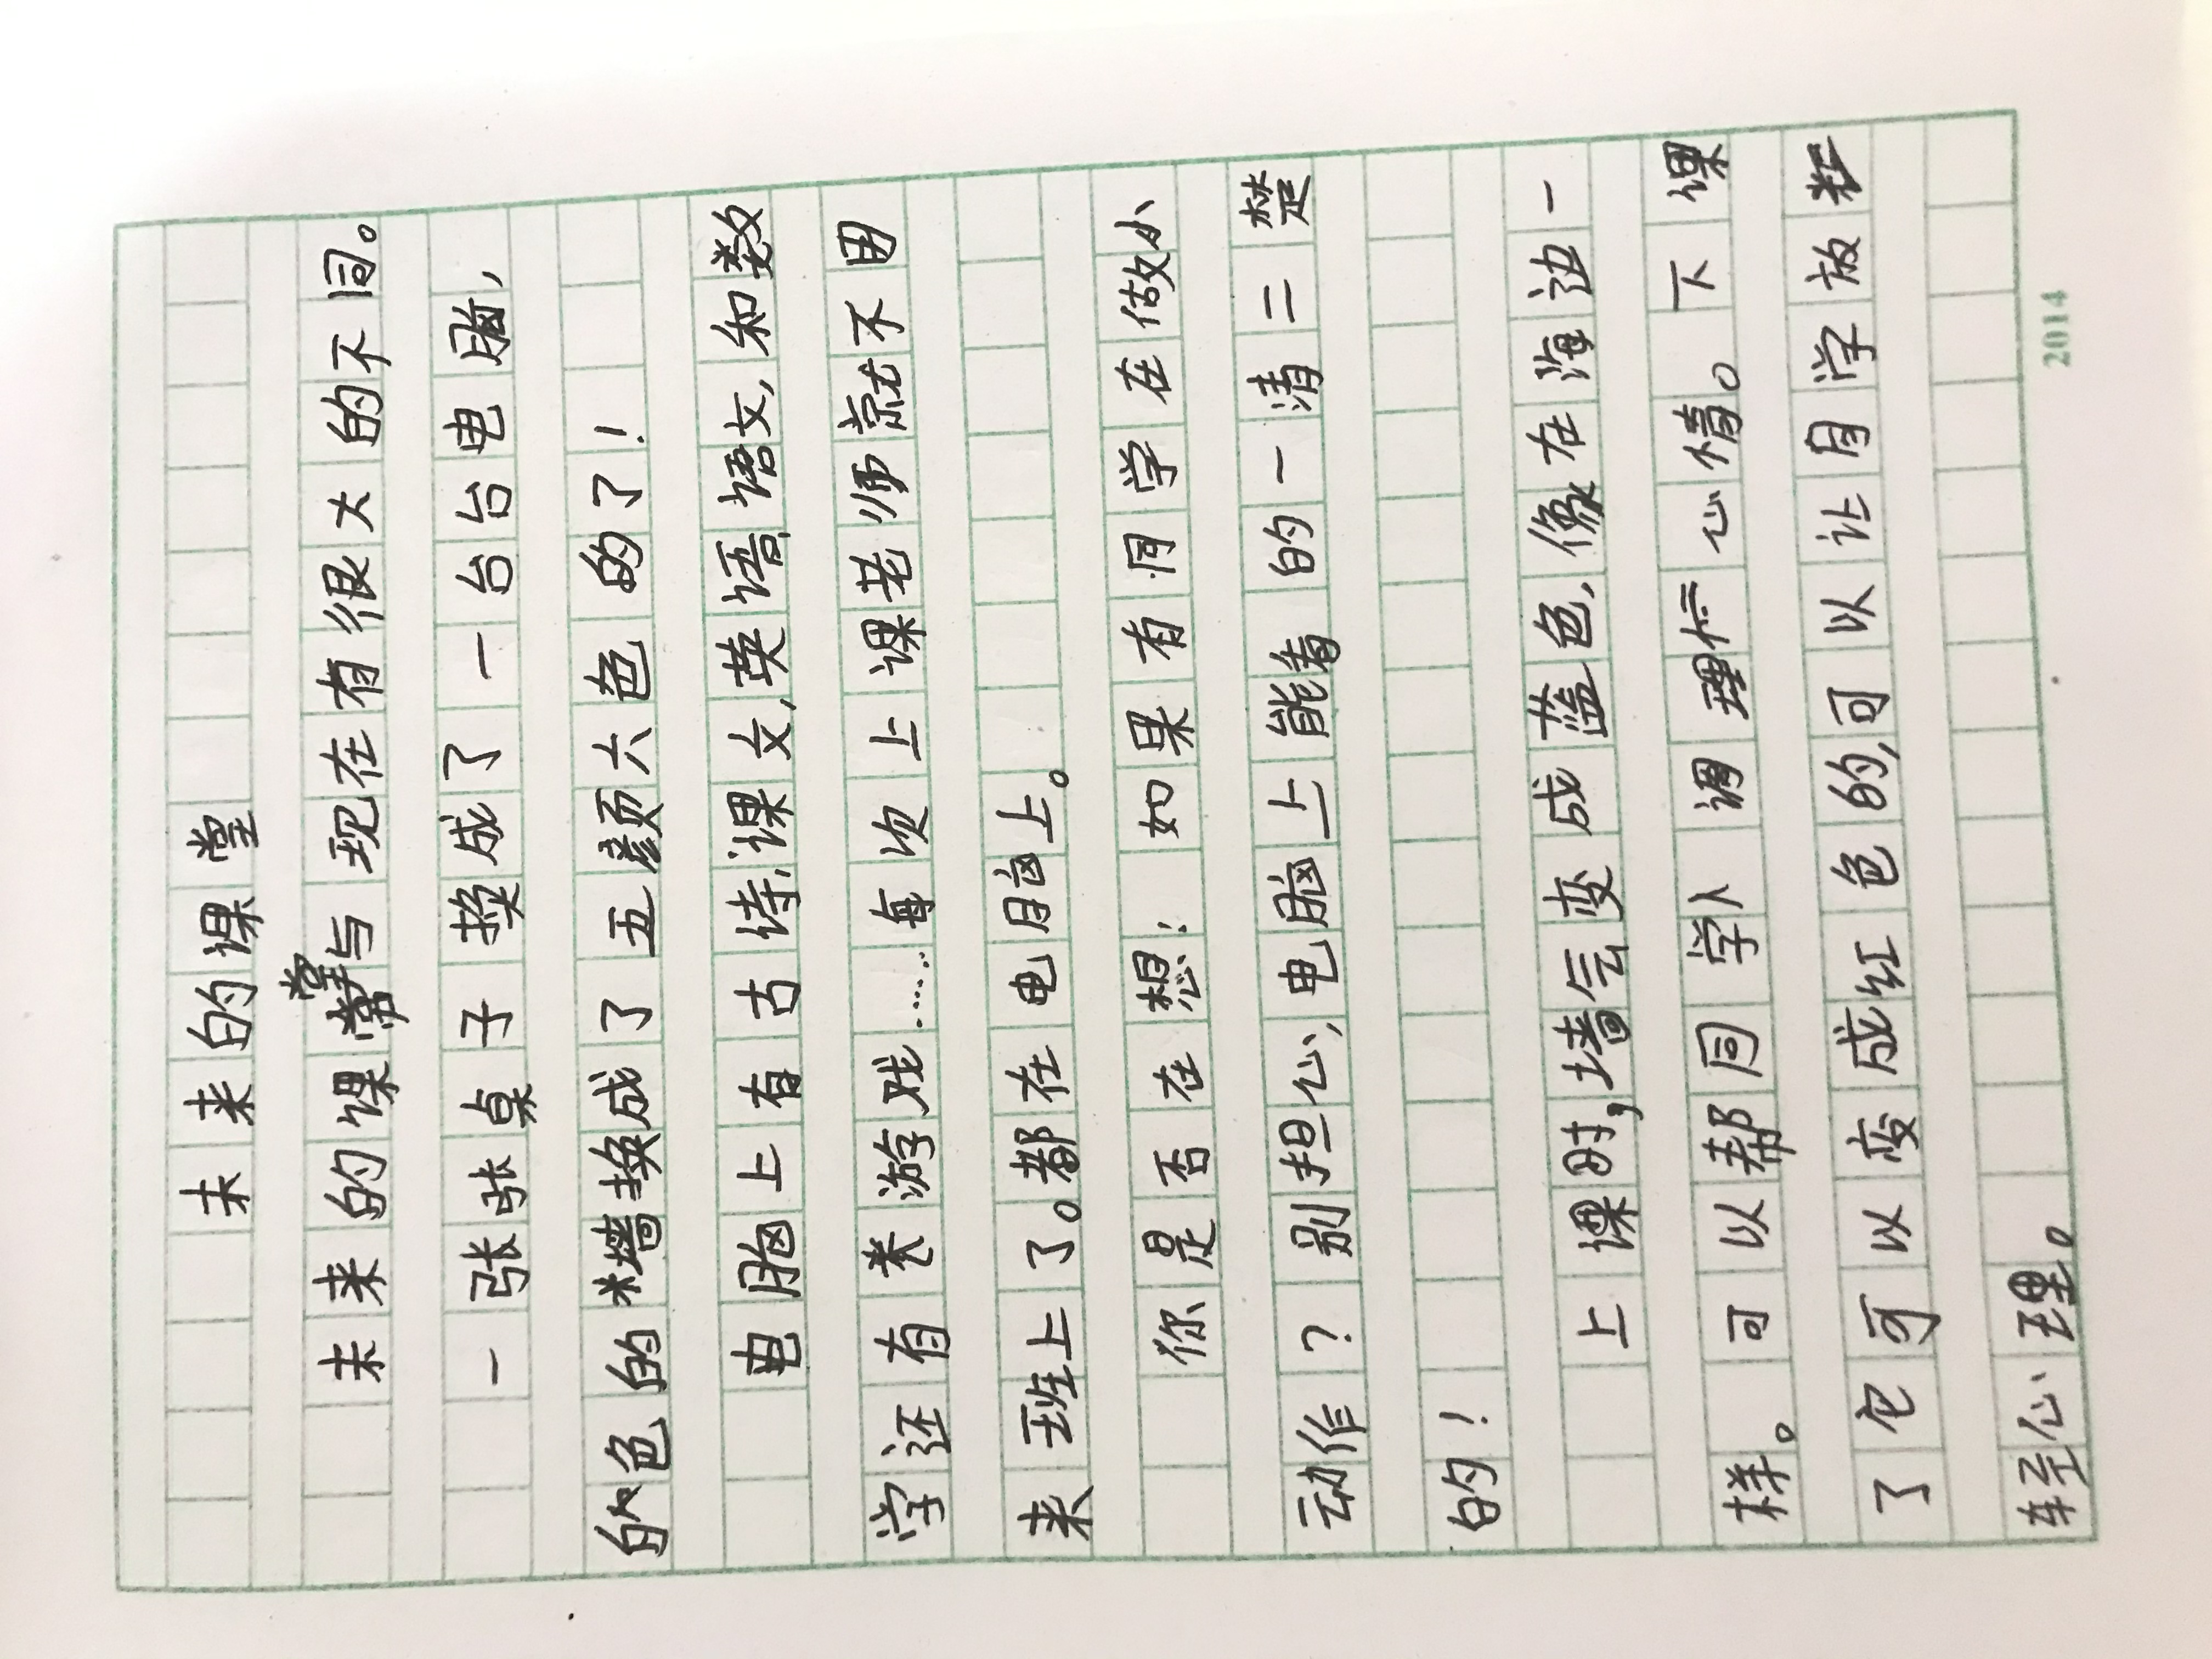 未来的课堂
未来的课堂与现在有很大的不同。
一张张桌子换成了一台台电脑,
的色的墙换成了五颜六色的了!
电脑上有古诗课文,英语语文,和数
学还有卷游戏……每次上课老师就不用
来班上了。都在电脑上。
你是否在想:如果有同学在做小
动作?别担心,电脑上能看的一清二楚
的!
上课时,墙会变成蓝色,像在海边一
样。可以帮同学人调理忙心情。下课
了它可以变成红色的,可以让同学放松
轻心理。
2014